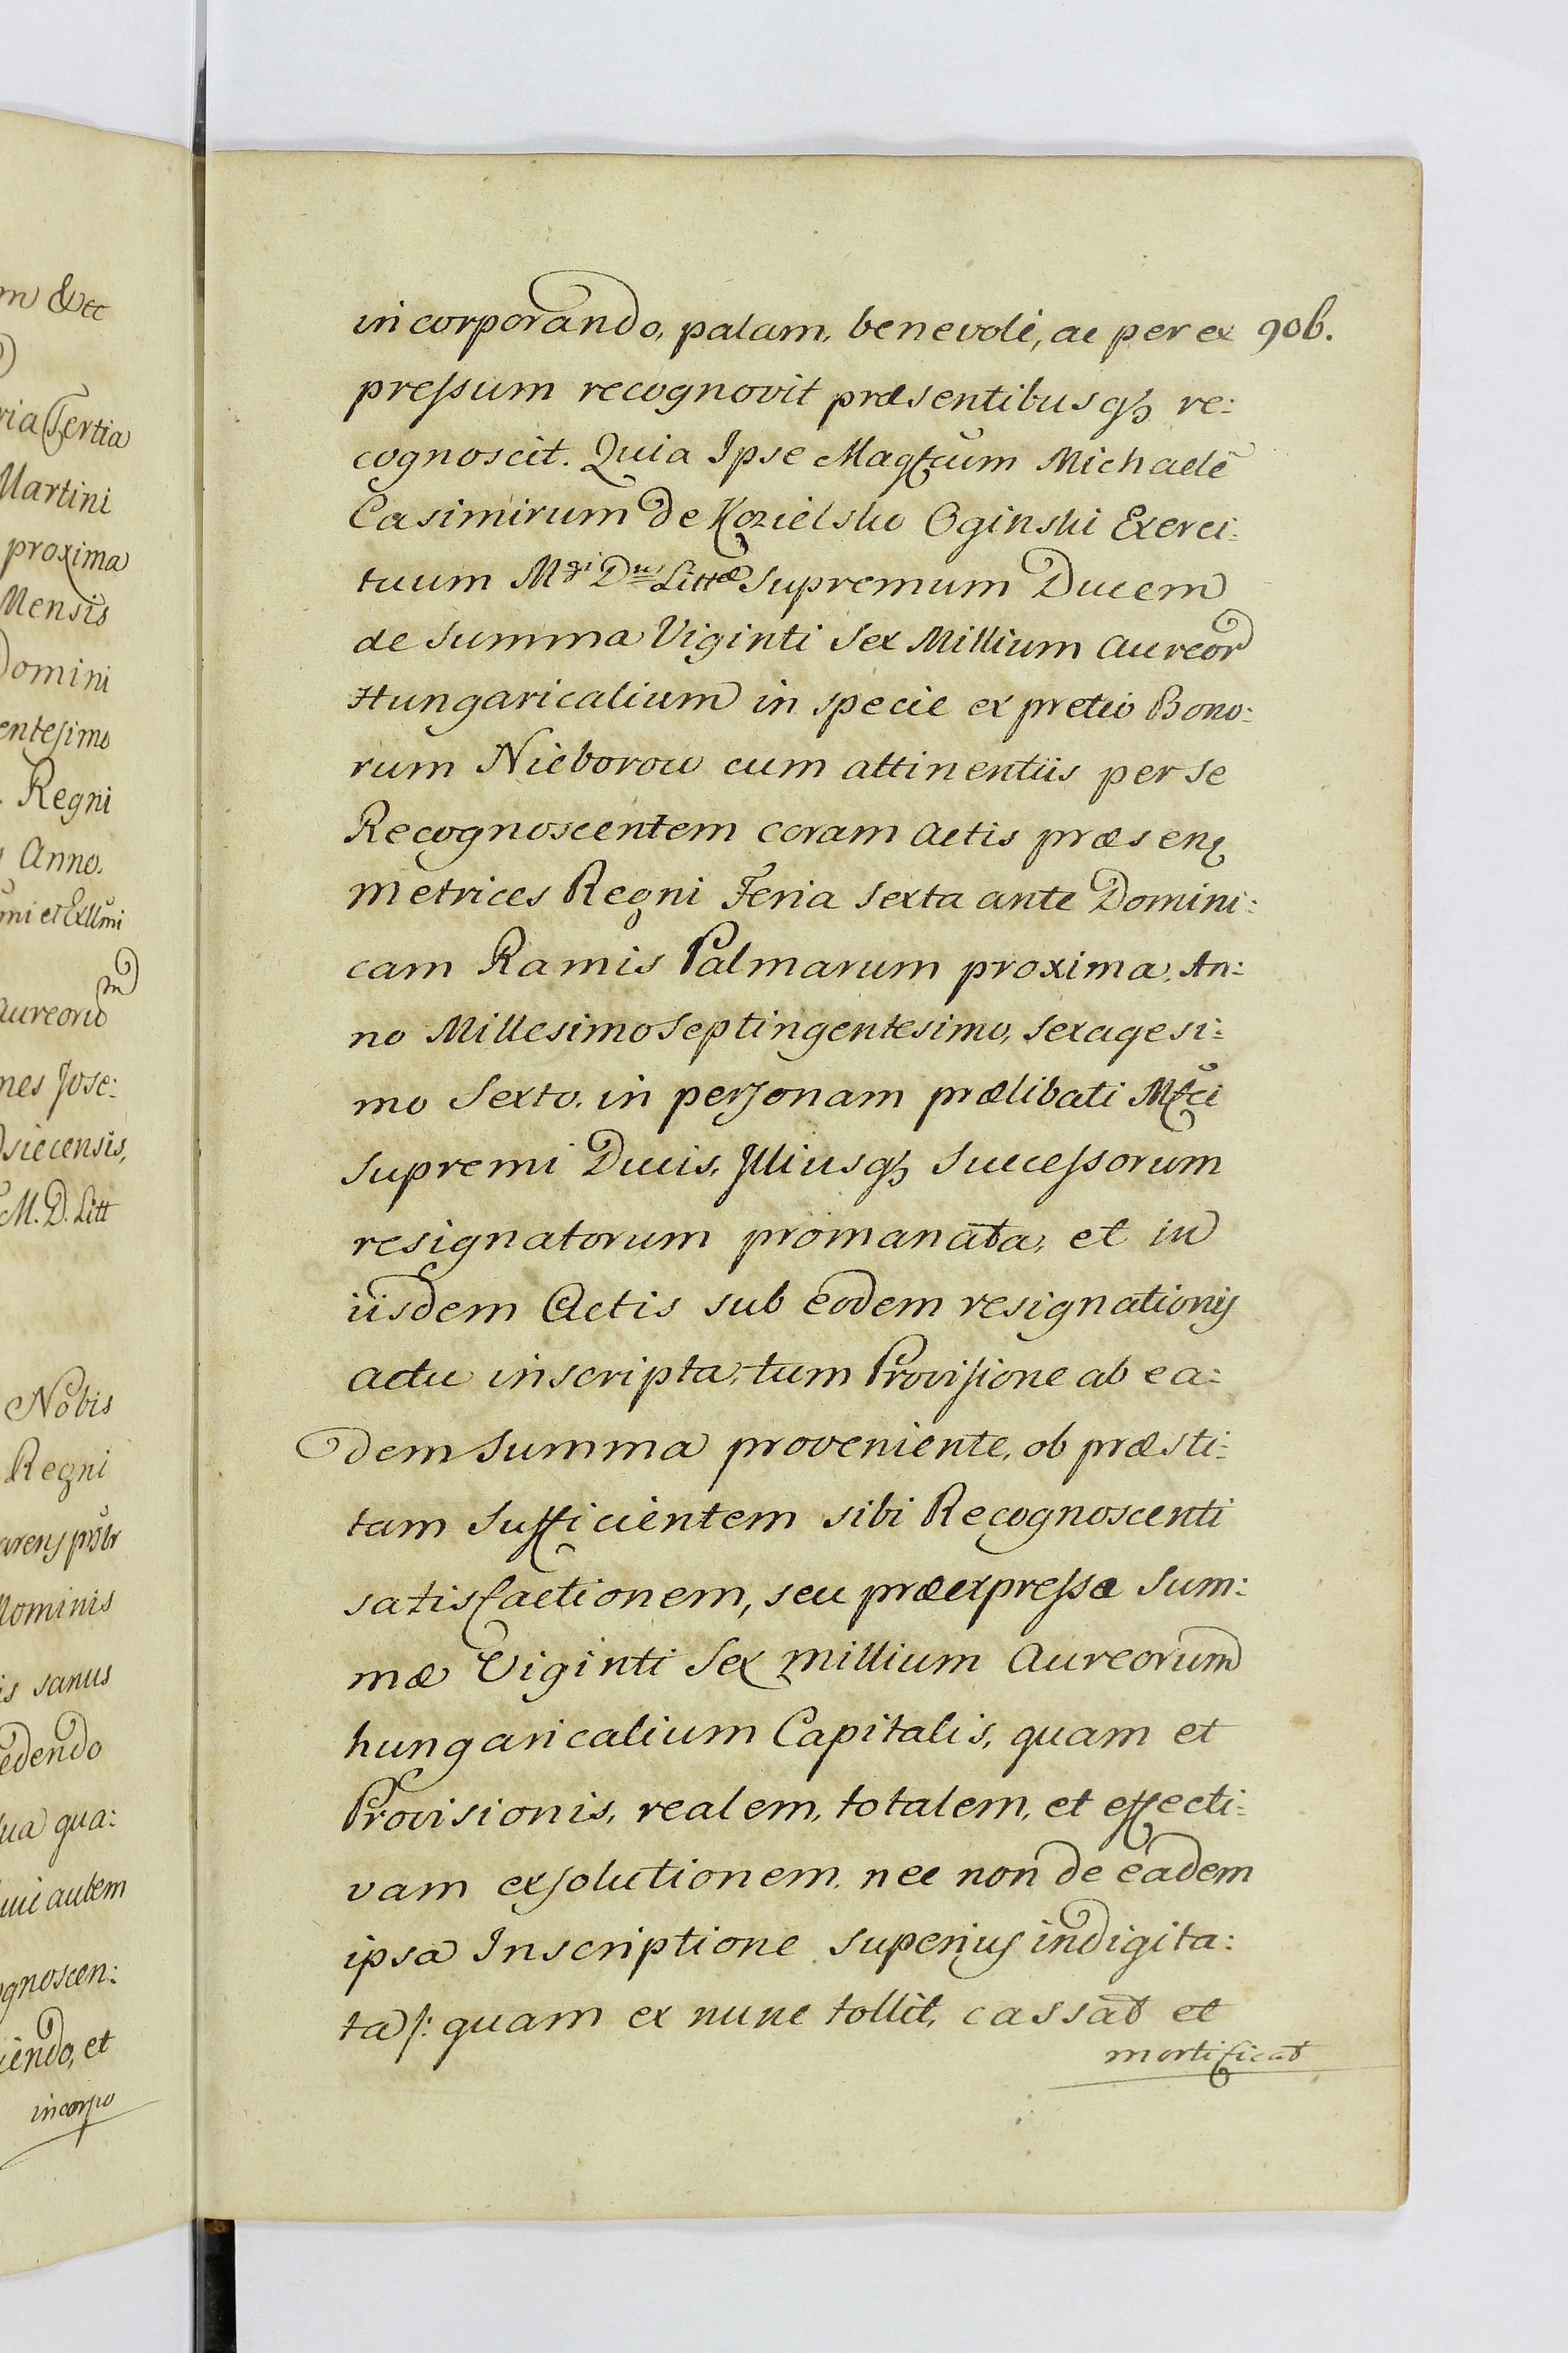 m &cc
ria Tertia
Martini
proxima
Mensis
Domini
entesimo
Regni
Anno.
mi et Exllmi
m
aureoru
nes Jose:
siecensis,
M. D. Litt
Nobis
Regni
arens
Nominis
is sanus
edendo
ua qua:
autem
ognoscen:
iendo, et
incorpo
incorporando, palam, benevoli, ac per ex 906.
pressum recognovit præsentibusqȝ re:
cognoscit. Quia Ipse Magfcum Michaelē
Casimirum de Kozielsko Oginski Exerci:
tuum Mgi Dus Littæ Supremum Ducem
de Summa Viginti Sex Millium aureor
Hungaricalium in specie ex pretio Bono:
rum Nieborow cum attinentiis per se
Recognoscentem coram actis præsenȩ
metrices Regni Feria Sexta ante Domini:
cam Ramis Palmarum proxima, An:
no Millesimo Septingentesimo, Sexagesi:
mo Sexto, in personam prælibati Mfci
Supremi Ducis, Illiusqȝ Successorum
resignatorum promanata, et in
iisdem Actis sub eodem resignationis
actu inscripta, tum Provisione ab ea:
dem Summa proveniente, ob præsti:
tam Sufficientem sibi Recognoscenti
satisfactionem, seu præexpressæ Sum:
mæ Viginti Sex millium Aureorum
hungaricalium Capitalis, quam et
Provisionis, realem, totalem, et effecti:
vam exsolutionem, nec non de eadem
ipsa Inscriptione superius indigita:
ta /: quam ex nunc tollit, cassat et
mortificat